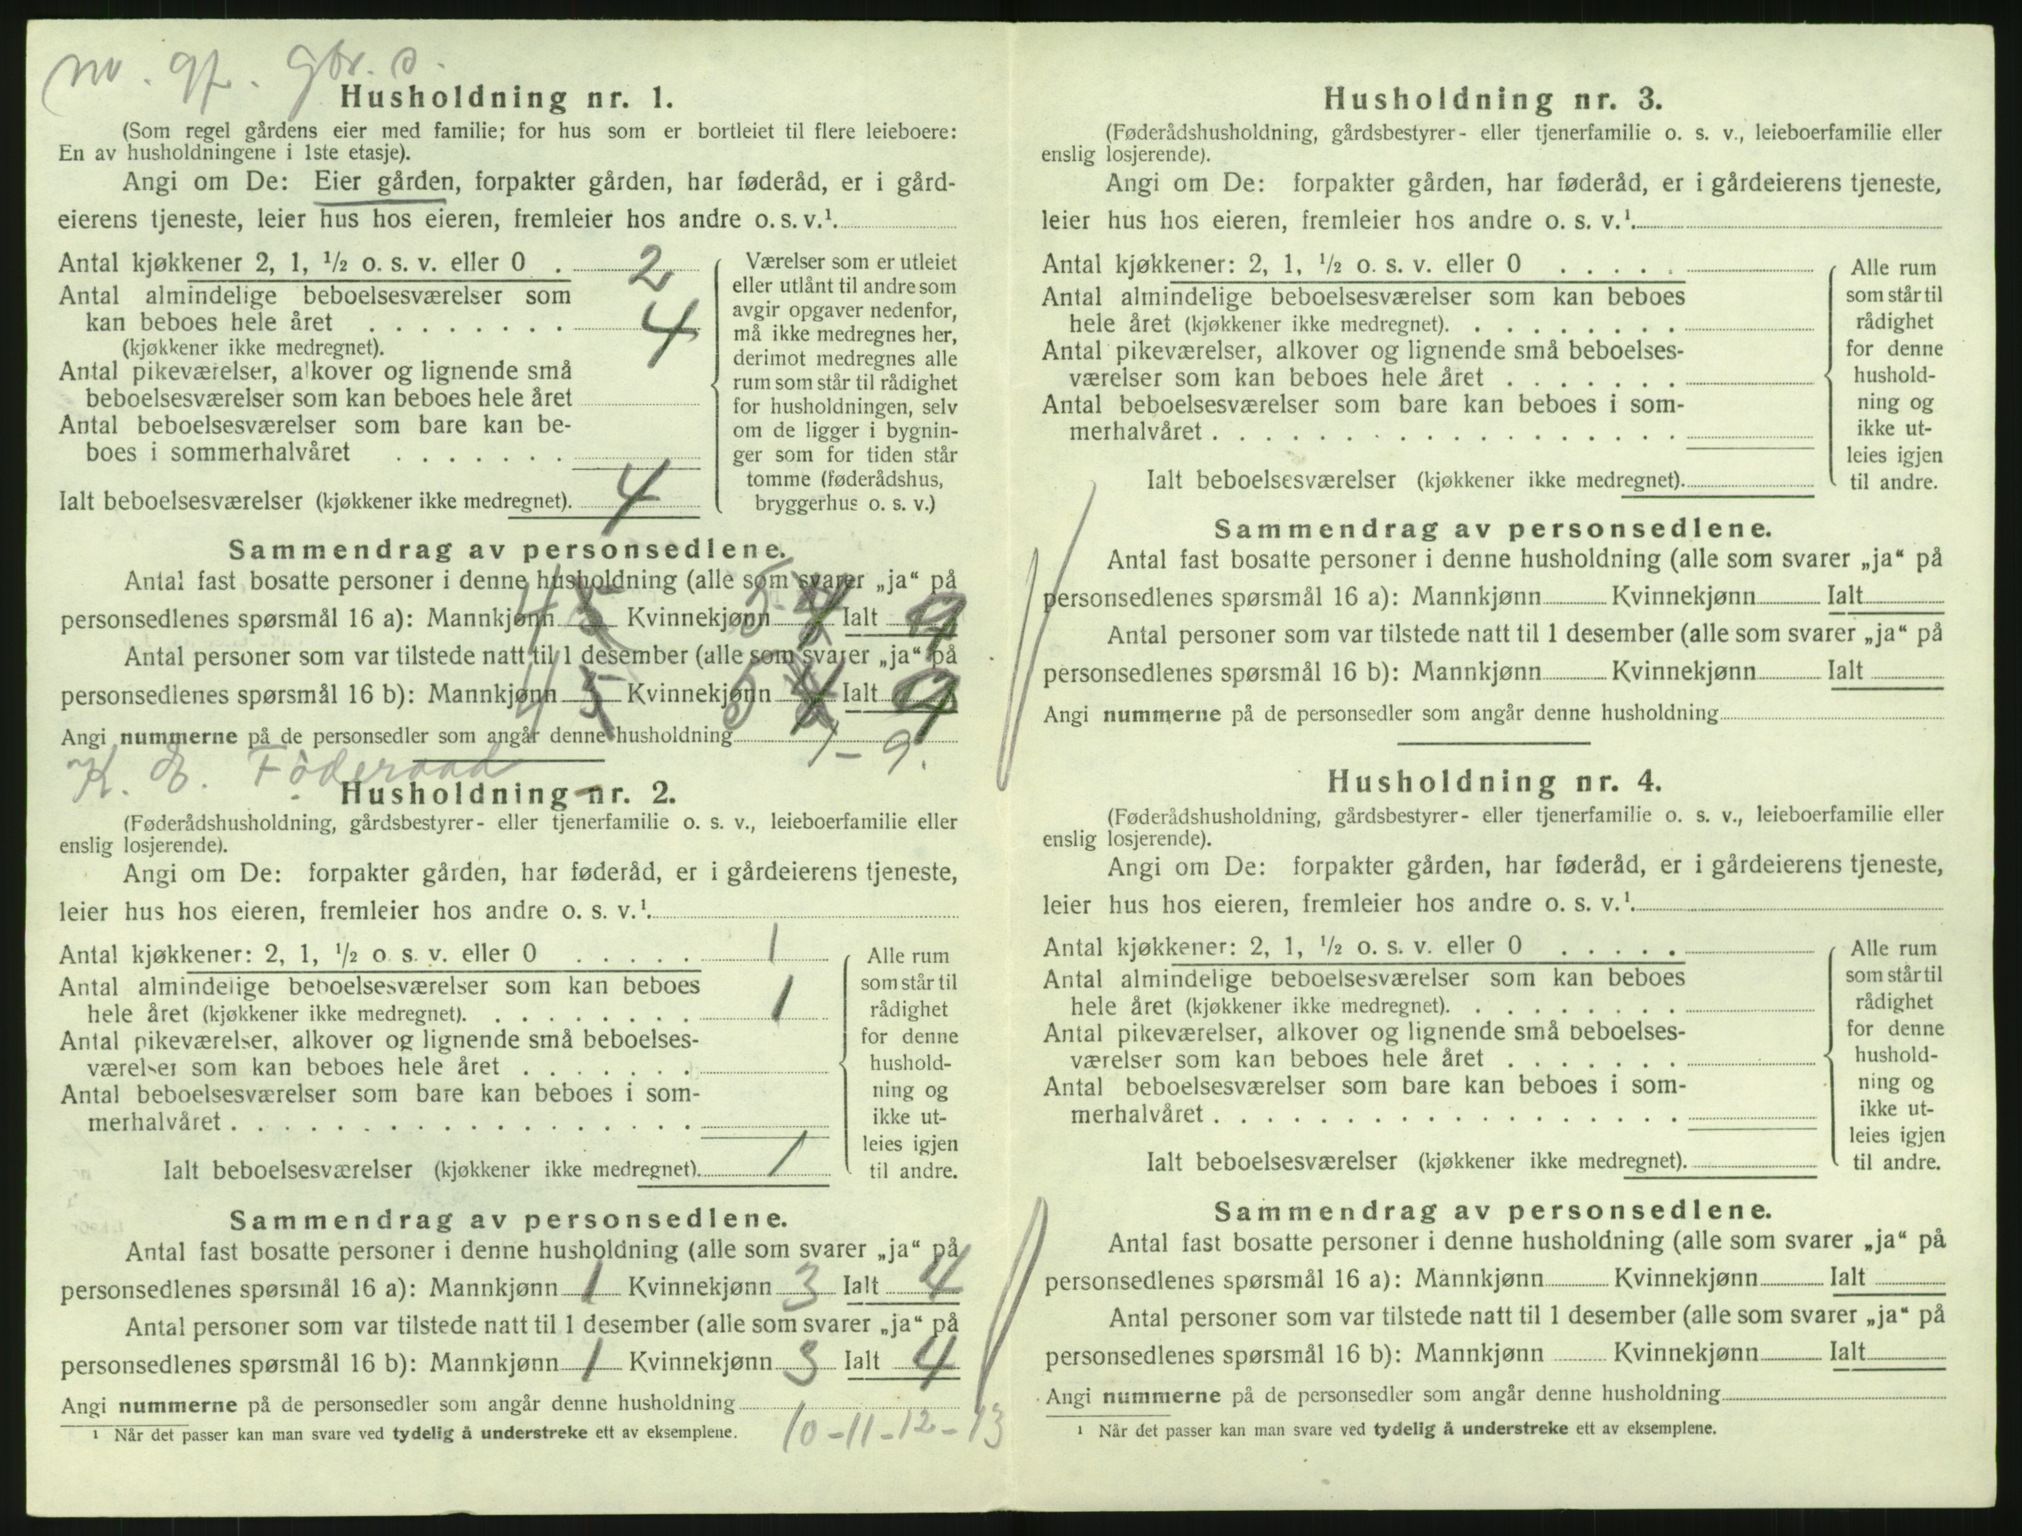 Husholdning nr. 1.
(Som regel gårdens eier med familie; for hus som er bortleiet til flere leieboere:
En av husholdningene i 1ste etasje).
Angi om De: Eier gården, forpakter gården, har føderåd, er i gård-
eierens tjeneste, leier hus hos eieren, fremleier hos andre o. s. v.¹
Antal kjøkkener 2, 1, ½ o. s. v. eller 0 . 2
Antal almindelige beboelsesværelser som
kan beboes hele året . . . . . . . . 4
(kjøkkener ikke medregnet).
Antal pikeværelser, alkover og lignende små
beboelsesværelser som kan beboes hele året
Antal beboelsesværelser som bare kan be-
boes i sommerhalvåret . . . . . . .
Ialt beboelsesværelser (kjøkkener ikke medregnet). 4
Værelser som er utleiet
eller utlånt til andre som
avgir opgaver nedenfor,
må ikke medregnes her,
derimot medregnes alle
rum som står til rådighet
for husholdningen, selv
om de ligger i bygnin-
ger som for tiden står
tomme (føderådshus,
bryggerhus o. s. v.)
Sammendrag av personsedlene.
Antal fast bosatte personer i denne husholdning (alle som svarer „ja“ på
personsedlenes spørsmål 16 a): Mannkjønn 4 5 Kvinnekjønn 5 4 Ialt 9
Antal personer som var tilstede natt til 1 desember (alle som svarer „ja“ på
personsedlenes spørsmål 16 b): Mannkjønn 4 5 Kvinnekjønn 5 4 Ialt 9
Angi nummerne på de personsedler som angår denne husholdning 1-9.
K. E. Föderaad
Husholdning nr. 2.
(Føderådshusholdning, gårdsbestyrer- eller tjenerfamilie o. s. v., leieboerfamilie eller
enslig losjerende).
Angi om De: forpakter gården, har føderåd, er i gårdeierens tjeneste,
leier hus hos eieren, fremleier hos andre o. s. v.¹
Antal kjøkkener: 2, 1, ½ o. s. v. eller 0 . . . . . 1
Antal almindelige beboelsesværelser som kan beboes
hele året (kjøkkener ikke medregnet). . . . . . . . . 1
Antal pikeværelser, alkover og lignende små beboelses-
værelser som kan beboes hele året . . . . . . .
Antal beboelsesværelser som bare kan beboes i som-
merhalvåret . . . . . . . . . . . . . . . . . .
Ialt beboelsesværelser (kjøkkener ikke medregnet). 1
Alle rum
som står til
rådighet
for denne
hushold-
ning og
ikke ut-
leies igjen
til andre.
Sammendrag av personsedlene.
Antal fast bosatte personer i denne husholdning (alle som svarer „ja“ på
personsedlenes spørsmål 16 a): Mannkjønn 1 Kvinnekjønn 3 Ialt 4
Antal personer som var tilstede natt til 1 desember (alle som svarer „ja“ på
personsedlenes spørsmål 16 b): Mannkjønn 1 Kvinnekjønn 3 Ialt 4
Angi nummerne på de personsedler som angår denne husholdning 10-11-12-13
¹ Når det passer kan man svare ved tydelig å understreke ett av eksemplene.
Husholdning nr. 3.
(Føderådshusholdning, gårdsbestyrer- eller tjenerfamilie o. s. v., leieboerfamilie eller
enslig losjerende).
Angi om De: forpakter gården, har føderåd, er i gårdeierens tjeneste,
leier hus hos eieren, fremleier hos andre o. s. v.¹
Antal kjøkkener: 2, 1, ½ o. s. v. eller 0 . . . . .
Antal almindelige beboelsesværelser som kan beboes
hele året (kjøkkener ikke medregnet). . . . . . . . .
Antal pikeværelser, alkover og lignende små beboelses-
værelser som kan beboes hele året . . . . . . .
Antal beboelsesværelser som bare kan beboes i som-
merhalvåret . . . . . . . . . . . . . . . . . .
Ialt beboelsesværelser (kjøkkener ikke medregnet).
Alle rum
som står til
rådighet
for denne
hushold-
ning og
ikke ut-
leies igjen
til andre.
Sammendrag av personsedlene.
Antal fast bosatte personer i denne husholdning (alle som svarer „ja“ på
personsedlenes spørsmål 16 a): Mannkjønn Kvinnekjønn Ialt
Antal personer som var tilstede natt til 1 desember (alle som svarer „ja“ på
personsedlenes spørsmål 16 b): Mannkjønn Kvinnekjønn Ialt
Angi nummerne på de personsedler som angår denne husholdning
Husholdning nr. 4.
(Føderådshusholdning, gårdsbestyrer- eller tjenerfamilie o. s. v., leieboerfamilie eller
enslig losjerende).
Angi om De: forpakter gården, har føderåd, er i gårdeierens tjeneste,
leier hus hos eieren, fremleier hos andre o. s. v.¹
Antal kjøkkener: 2, 1, ½ o. s. v. eller 0 . . . . .
Antal almindelige beboelsesværelser som kan beboes
hele året (kjøkkener ikke medregnet). . . . . . . . .
Antal pikeværelser, alkover og lignende små beboelses-
værelser som kan beboes hele året . . . . . . .
Antal beboelsesværelser som bare kan beboes i som-
merhalvåret . . . . . . . . . . . . . . . . . .
Ialt beboelsesværelser (kjøkkener ikke medregnet).
Alle rum
som står til
rådighet
for denne
hushold-
ning og
ikke ut-
leies igjen
til andre.
Sammendrag av personsedlene.
Antal fast bosatte personer i denne husholdning (alle som svarer „ja“ på
personsedlenes spørsmål 16 a): Mannkjønn Kvinnekjønn Ialt
Antal personer som var tilstede natt til 1 desember (alle som svarer „ja“ på
personsedlenes spørsmål 16 b): Mannkjønn Kvinnekjønn Ialt
Angi nummerne på de personsedler som angår denne husholdning
¹ Når det passer kan man svare ved tydelig å understreke ett av eksemplene.